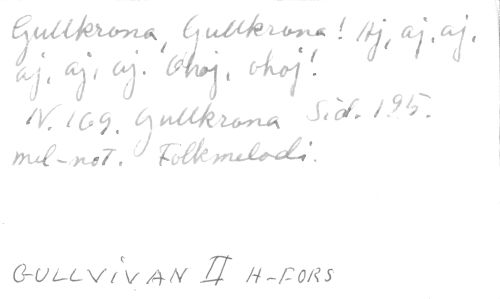 Gullkrona, Gullkrona! Aj, aj, aj,
aj, aj, aj. Ohoj, ohoj!
N. 169. Gullkrona Sid. 195.
mel-not. Folkmelodi.
GULLVIVAN II H-FORS